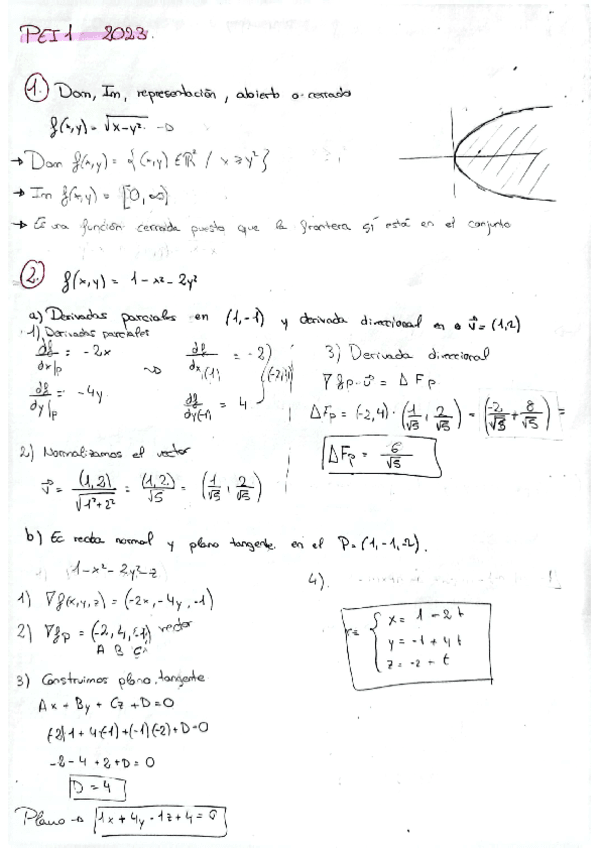 PEI 1 2023.
1. Dom, Im, representación, abierto o cerrado
f(x,y) = √x-y²
→ Dom f(x,y) = {(x,y) ∈ ℝ² / x ≥ y²}
→ Im f(x,y) = [0,∞)
→ Es una función cerrada puesto que la frontera sí está en el conjunto
2. f(x,y) = 1-x²-2y²
a) Derivadas parciales en (1,-1) y derivada direccional en v⃗ = (1,2)
1) Derivadas parciales
df/dx|p = -2x
df/dx,(1) = -2
df/dy|p = -4y
df/dy(-1) = 4
(-2,4)
2) Normalizamos el vector
v⃗ = (1,2)/√1²+2² = (1,2)/√5 = (1/√5, 2/√5)
3) Derivada direccional
∇fp·v⃗ = ΔFp
ΔFp = (-2,4)·(1/√5, 2/√5) = (-2/√5 + 8/√5) =
ΔFp = 6/√5
b) Ec recta normal y plano tangente en el P=(1,-1,-2).
1-x²-2y²-z
1) ∇f(x,y,z) = (-2x,-4y,-1)
2) ∇fp = (-2,4,-1) vector
A B C
3) Construimos plano tangente
Ax + By + Cz + D = 0
(-2)1 + 4(-1) + (-1)(-2) + D = 0
-2 - 4 + 2 + D = 0
D = 4
Plano → 1x + 4y - 1z + 4 = 0
4)
r = { x = 1 - 2t
y = -1 + 4t
z = -2 - t